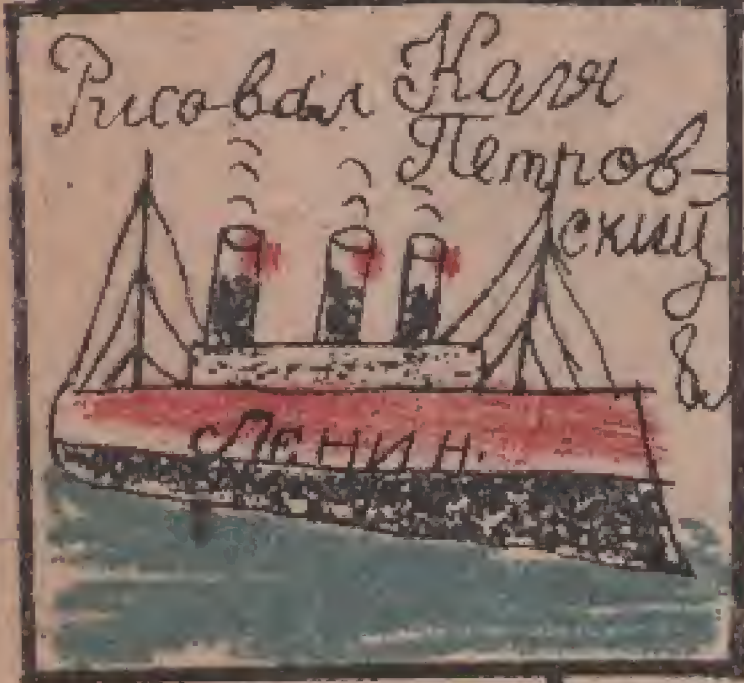 Рисовал Коля
Петров-
ский
8 л
Ленин.